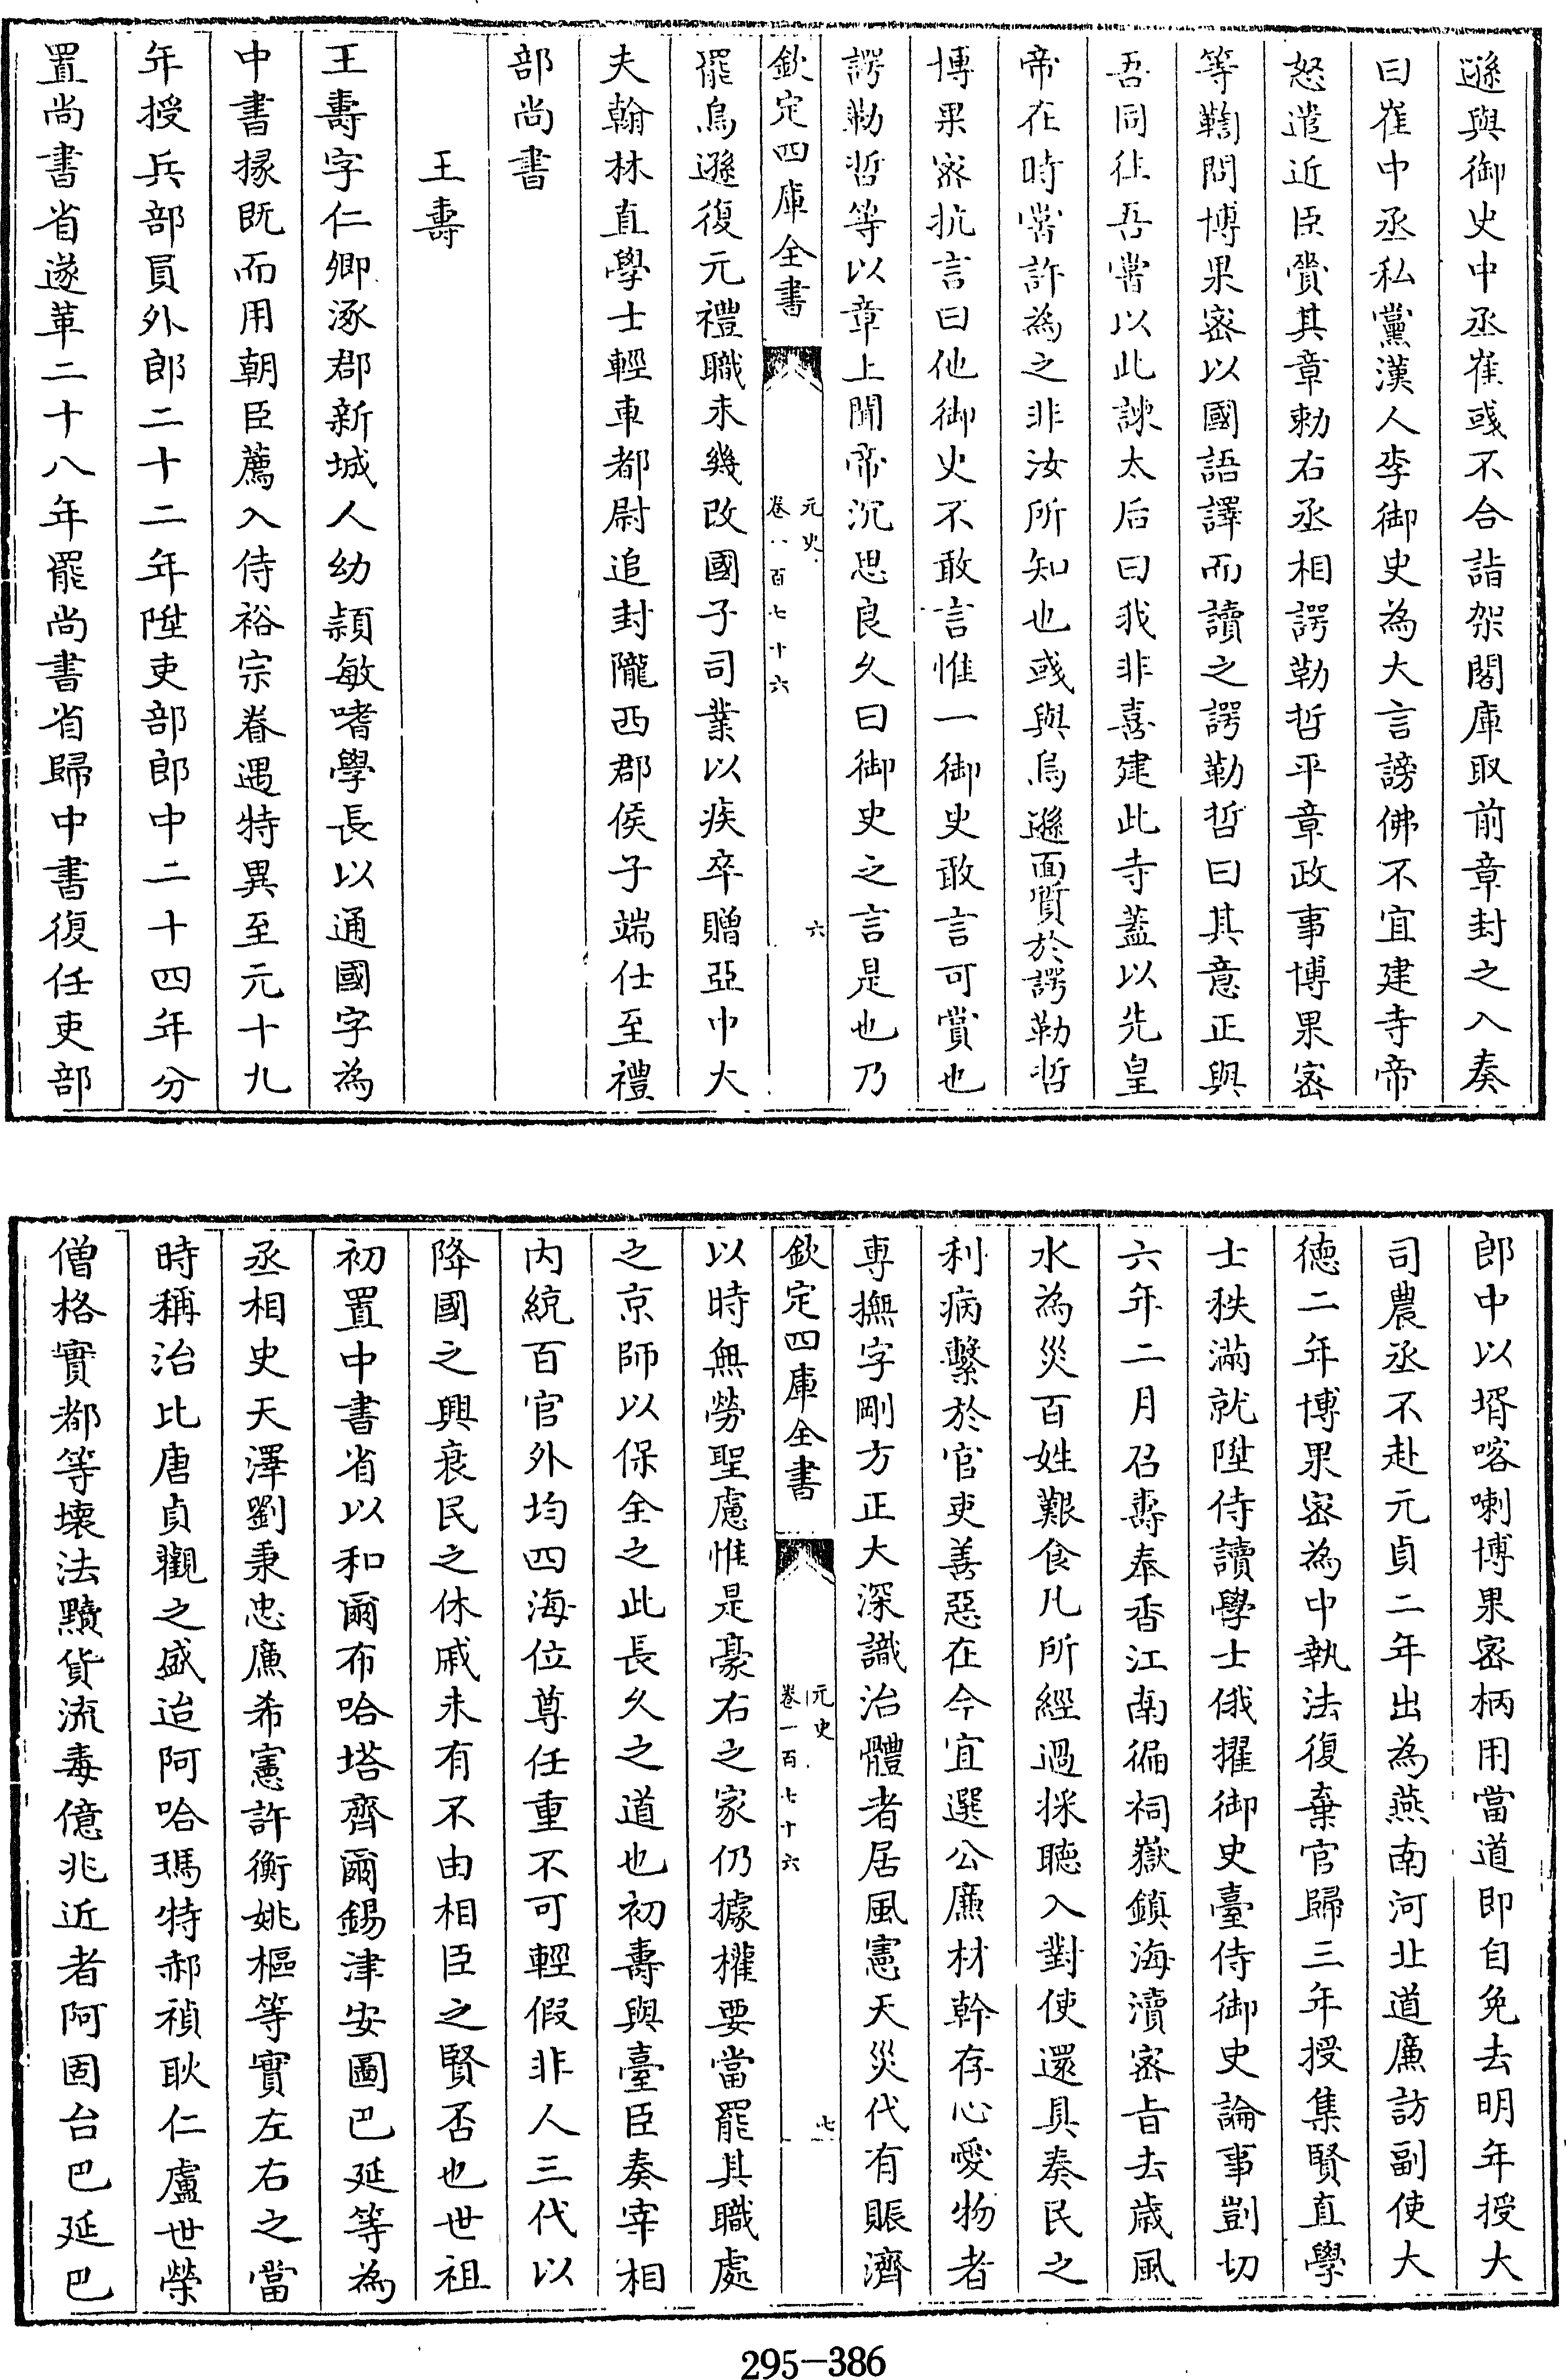 遜與御史中丞崔彧不合詣架閣庫取前章封之入奏
曰崔中丞私黨漢人李御史為大言謗佛不宜建寺帝
怒遣近臣賫其章勅右丞相諤勒哲平章政事博果密
等鞫問博果密以國語譯而讀之諤勒哲曰其意正與
吾同往吾嘗以此諫太后曰我非喜建此寺蓋以先皇
帝在時嘗許為之非汝所知也彧與烏遜面質於諤勒哲
博果密抗言曰他御史不敢言惟一御史敢言可賞也
諤勒哲等以章上聞帝沉思良久曰御史之言是也乃
欽定四庫全書
元史
卷一百七十六
六
罷烏遜復元禮職未幾改國子司業以疾卒贈亞中大
夫翰林直學士輕車都尉追封隴西郡侯子端仕至禮
部尚書
王壽
王壽字仁卿涿郡新城人幼頴敏嗜學長以通國字為
中書掾既而用朝臣薦入侍裕宗眷遇特異至元十九
年授兵部員外郎二十二年陞吏部郎中二十四年分
置尚書省遂革二十八年罷尚書省歸中書復任吏部
郎中以壻喀喇博果密柄用當道即自免去明年授大
司農丞不赴元貞二年出為燕南河北道廉訪副使大
徳二年博果密為中執法復棄官歸三年授集賢直學
士秩滿就陞侍讀學士俄擢御史臺侍御史論事剴切
六年二月召壽奉香江南徧祠嶽鎮海瀆密旨去歳風
水為災百姓艱食凡所經過採聽入對使還具奏民之
利病繫於官吏善惡在今宜選公廉材幹存心愛物者
專撫字剛方正大深識治體者居風憲天災代有賑濟
欽定四庫全書
元史
卷一百七十六
七
以時無勞聖慮惟是豪右之家仍據權要當罷其職處
之京師以保全之此長久之道也初壽與臺臣奏宰相
内統百官外均四海位尊任重不可輕假非人三代以
降國之興衰民之休戚未有不由相臣之賢否也世祖
初置中書省以和爾布哈塔齊爾錫津安圖巴延等為
丞相史天澤劉秉忠廉希憲許衡姚樞等實左右之當
時稱治比唐貞觀之盛迨阿哈瑪特郝禎耿仁盧世榮
僧格實都等壊法黷貨流毒億兆近者阿固台巴延巴
295-386